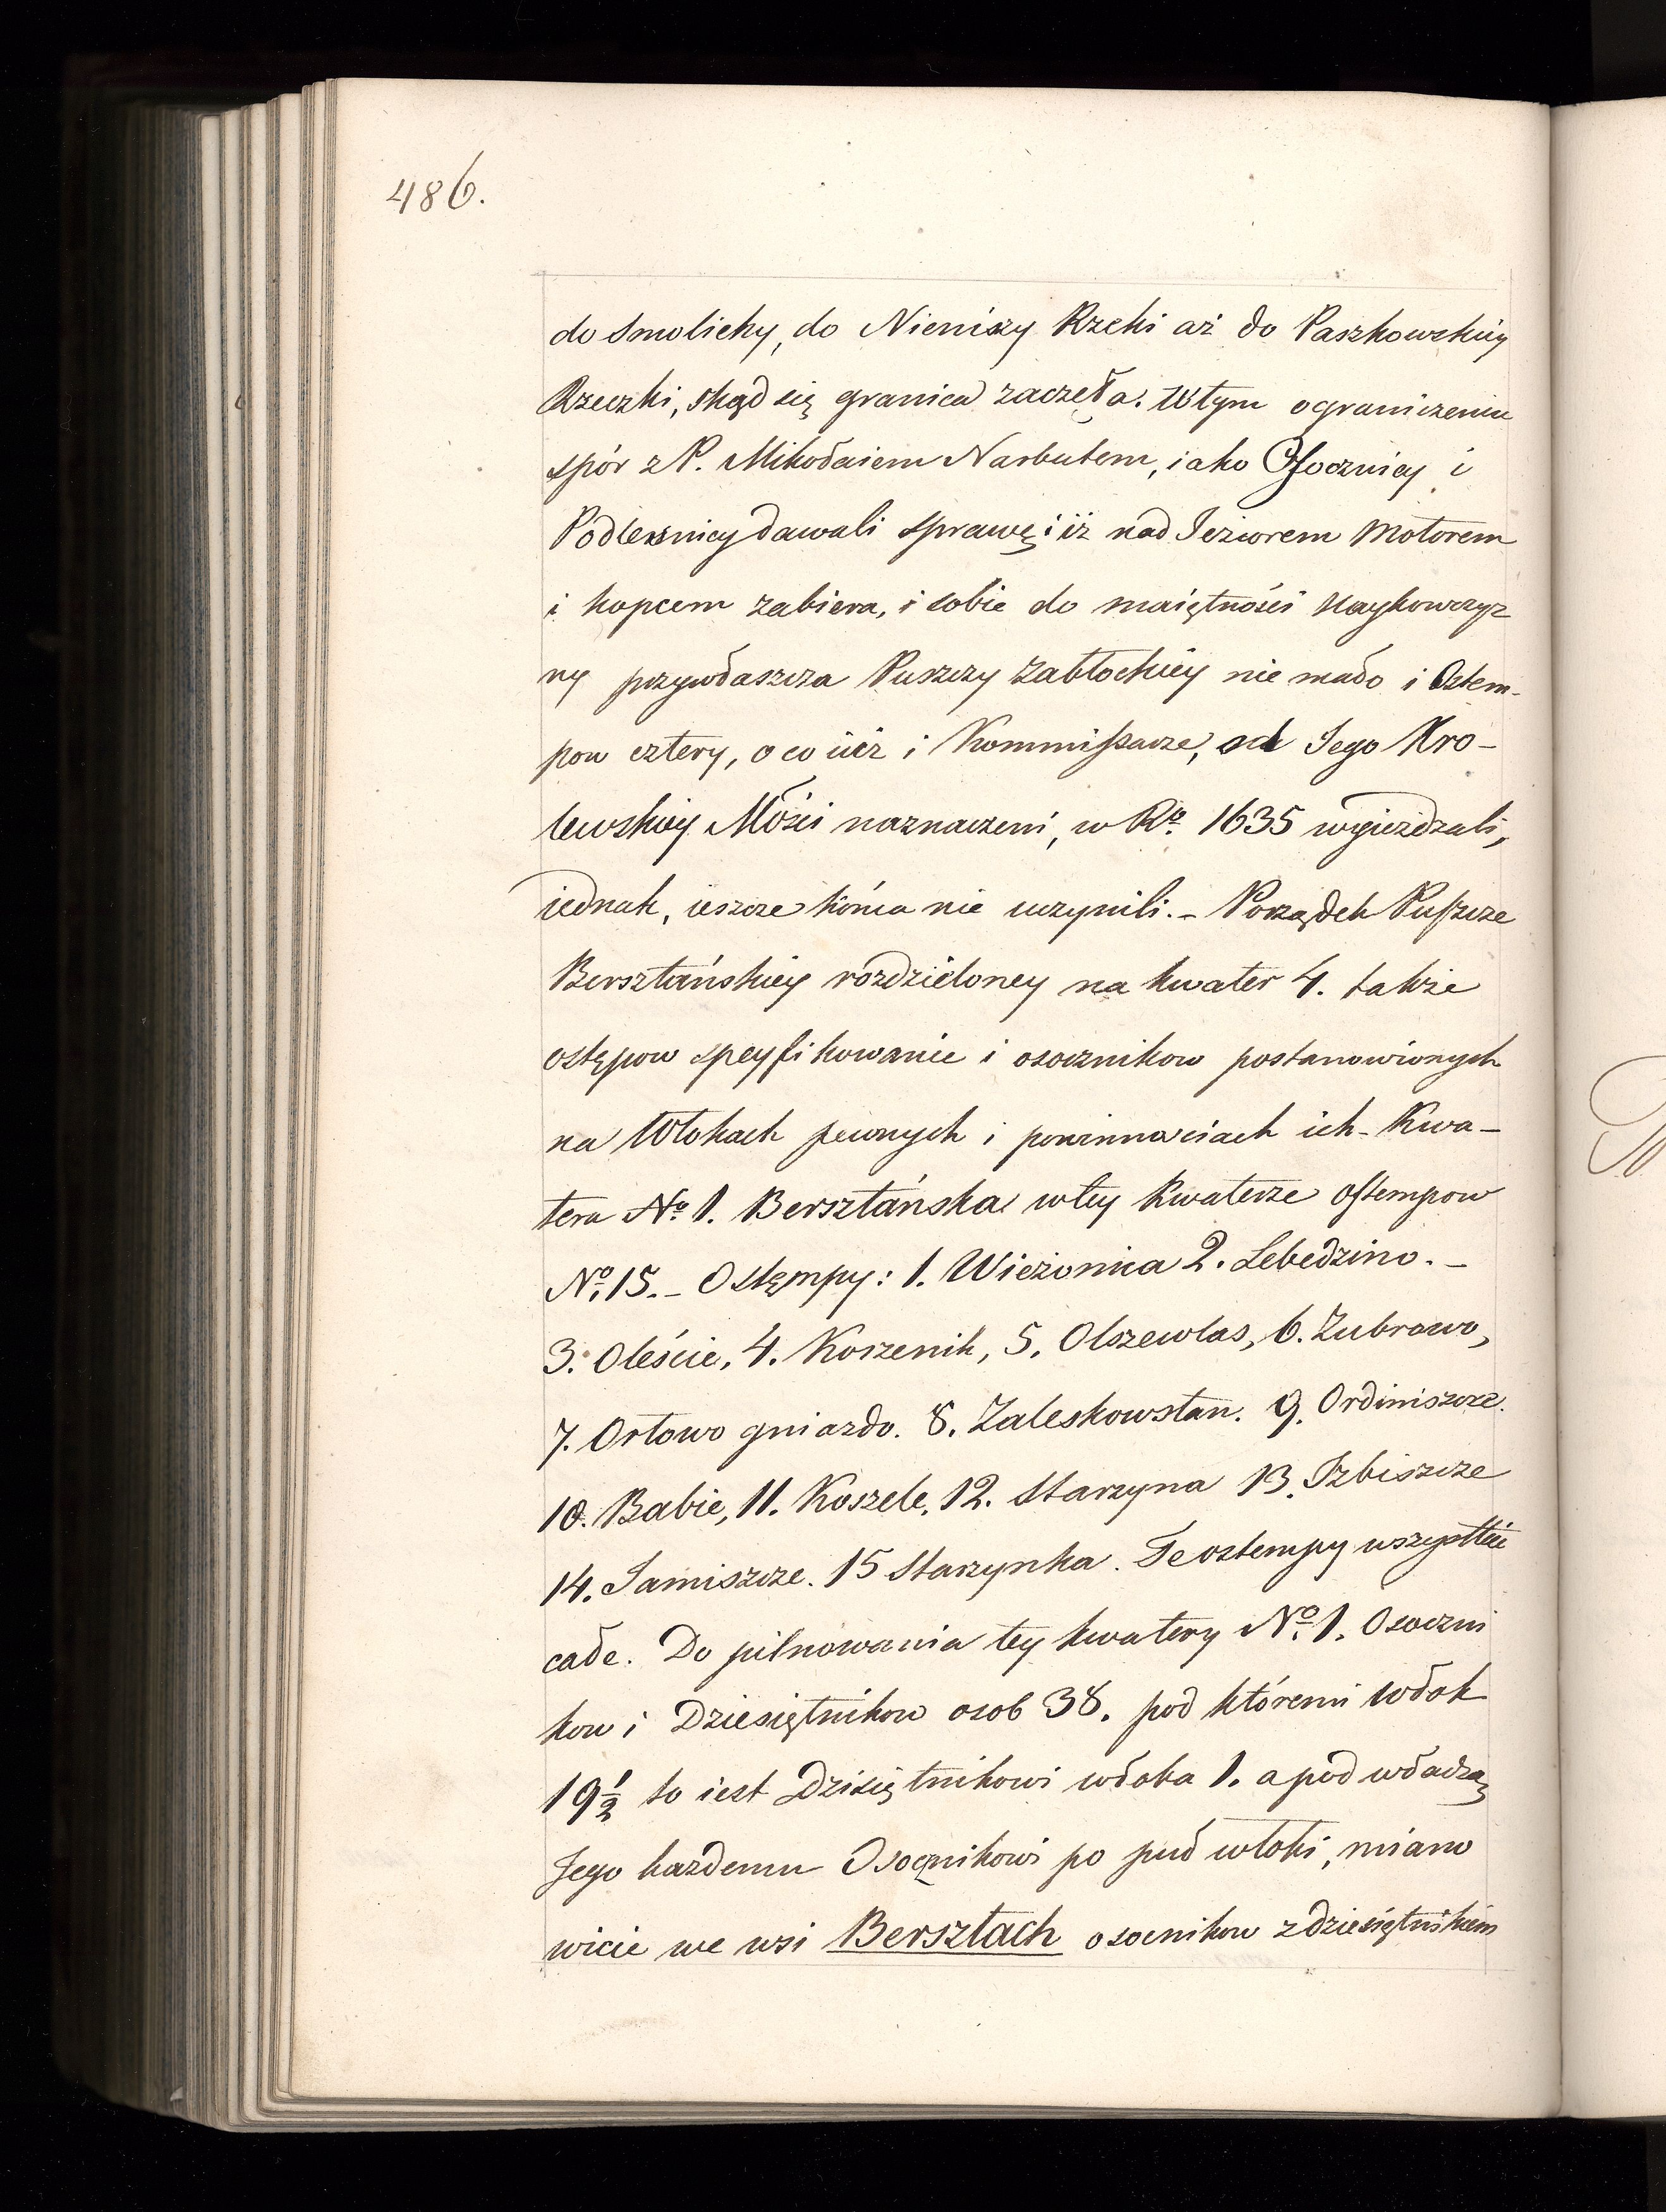 486.
do Smolichy, do Nieniszy Rzeki aż do Paszkowskiey
Rzeczki, skąd się granica zaczęła. W tym ograniczeniu
spór z P. Mikołaiem Narbutem, iako Osocznicy i
Podlesnicy dawali sprawę, i iż nad Jeziorem Motorem
i kopcem zabiera, i sobie do maiętności Naykowczyz
ny przywłaszcza Puszczy Zabłockiey nie mało i Ostem-
pow cztery, o co iuż i Kommissarze, od Jego Kro-
lewskiey Mości naznaczeni, w Ro. 1635 wyieżdzali,
iednak, ieszcze końca nie uczynili. - Porządek Puszcze
Bersztańskiey rozdzieloney na kwater 4. także
ostępow specyfikowanie i osocznikow postanowionych
na Włokach pewnych i powinnosciach ich - Kwa-
tera No. 1. Bersztańska w tey Kwaterze Ostempow
No. 15. - Ostęmpy: 1. Wieżonka 2. Lebedzino. -
3. Oleście, 4. Korzenik, 5. Olszewlas, 6. Zubrowo,
7. Orłowo gniazdo. 8. Zaleskowstan. 9. Ordiniszcze.
10. Babie, 11. Koszele, 12. Starzyna 13. Izbiszcze
14. Jamiszcze. 15 Starzynka. Te ostempy wszystkie
całe. Do pilnowania tey kwatery No. 1. Osoczni
kow i Dziesiętnikow osob 38. pod któremi włok
19 1/2 to iest Dzisiętnikowi włoka 1. a pod władzą
Jego każdemu Osocznikowi po puł włoki, miano
wicie we wsi Bersztach osocnikow z dziesiętnikiem